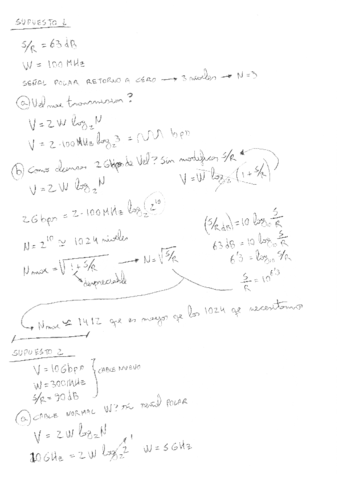 SUPUESTO 1
S/R = 63 dB
W = 100 MHz
SEÑAL POLAR RETORNO A CERO → 3 niveles → N=3
a) Vel max transmision?
V = 2 W log₂ N
V = 2·100 MHz log₂ 3 = bps
b) Como 2 Gbps de Vel? Sin modificar S/R
V = 2 W log₂ N
V = W log₂ (1 + S/R)
2 Gbps = 2·100 MHz log₂ 2¹⁰
(S/R dB) = 10 log S/R
N = 2¹⁰ ≅ 1024 niveles
63 dB = 10 log S/R
6'3 = log S/R
N max = √(1 + S/R) → N = √(S/R)
despreciable
S/R = 10^6'3
N max ≅ 1412 que es mayor que los 1024 que necesitamos
SUPUESTO 2
V = 10 Gbps
W = 300 MHz
S/R = 90 dB
CABLE NUEVO
a) CABLE NORMAL W? POLAR
V = 2 W log₂ N
10 GHz = 2 W log₂ 2 W = 5 GHz